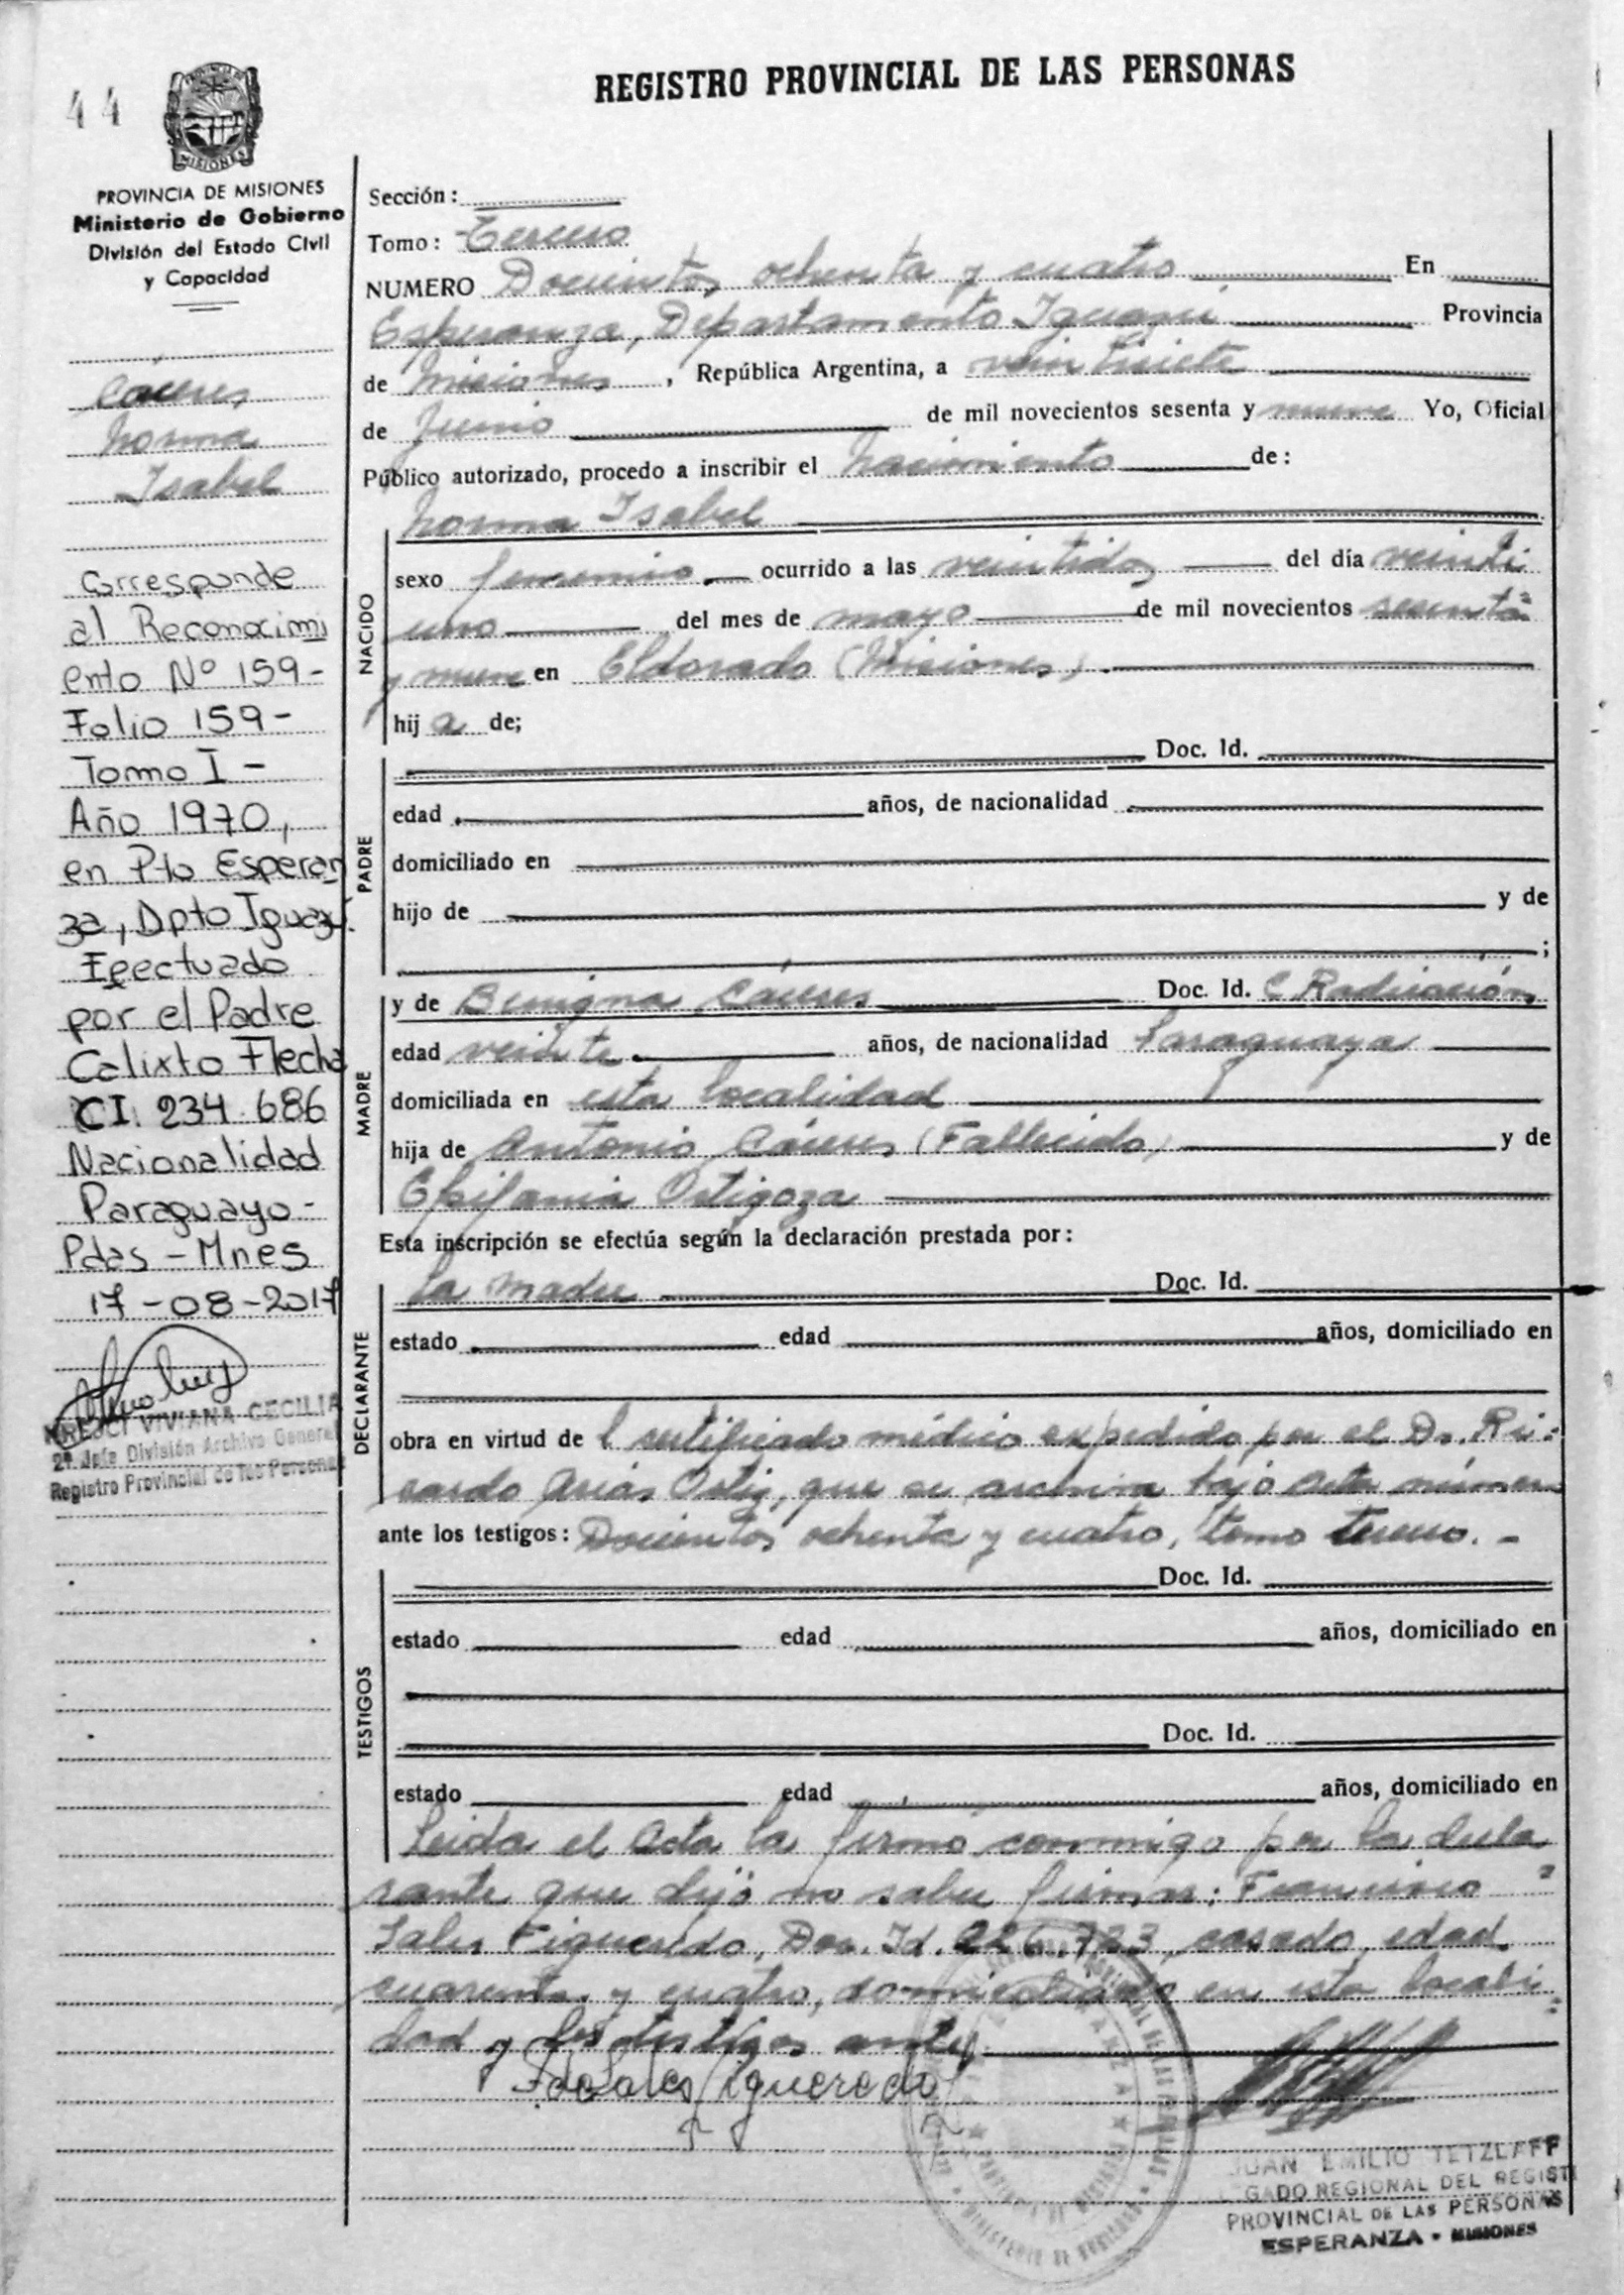 REGISTRO PROVINCIAL DE LAS PERSONAS
44
MISIONES
PROVINCIA DE MISIONES
Ministerio de Gobierno
División del Estado Civil
y Capacidad
Cáceres
Norma
Isabel
Corresponde
al Reconocimi
ento Nº 159-
Folio 159-
Tomo I-
Año 1970,
en Pto Esperan
za, Dpto Iguazú.
Efectuado
por el Padre
Calixto Flecha
CI. 234.686
Nacionalidad
Paraguayo-
Pdas - Mnes
17-08-2017
VIVIANA CECILIA
2º Jefe División Archivo General
Registro Provincial de las Personas
Sección:
Tomo: Tercero
NUMERO Docientos ochenta y cuatro En
Esperanza, Departamento Iguazú Provincia
de Misiones, República Argentina, a veintisiete
de Junio de mil novecientos sesenta y nueve Yo, Oficial
Público autorizado, procedo a inscribir el nacimiento de:
Norma Isabel
NACIDO
sexo femenino ocurrido a las veintidos del día veinti
uno del mes de mayo de mil novecientos sesenta
y nueve en Eldorado (Misiones).
hij a de;
PADRE
Doc. Id.
edad años, de nacionalidad
domiciliado en
hijo de y de
;
MADRE
y de Benigna Cáceres Doc. Id. C Radicación
edad veinte años, de nacionalidad Paraguaya
domiciliada en esta localidad
hija de Antonio Cáceres (Fallecido) y de
Epifania Ortigoza
Esta inscripción se efectúa según la declaración prestada por:
DECLARANTE
La madre Doc. Id.
estado edad años, domiciliado en
obra en virtud de l certificado médico expedido por el Dr. Ri-
cardo Arias Ortiz, que se archiva bajo acta número
ante los testigos: Docientos ochenta y cuatro, tomo tercero.-
TESTIGOS
Doc. Id.
estado edad años, domiciliado en
Doc. Id.
estado edad años, domiciliado en
Leida el Acta la firmó conmigo por la decla
rante que dijo no saber firmar: Francisco
Sales Figueredo, Doc. Id. 226.723, casado, edad
cuarenta y cuatro, domiciliado en esta locali
dad y los testigos
Fco Sales Figueredo
JUAN EMILIO TETZLAFF
GADO REGIONAL DEL REGIST
PROVINCIAL DE LAS PERSONAS
ESPERANZA - MISIONES